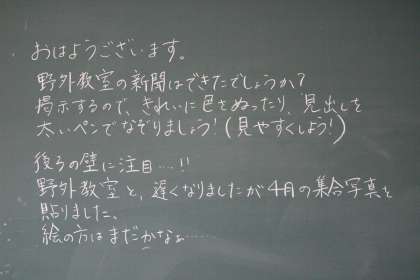 おはようございます。
野外教室の新聞はできたでしょうか?
掲示するので、きれいに色をぬったり、見出しを
太いペンでなぞりましょう!(見やすくしよう!)
後ろの壁に注目…!!
野外教室と、遅くなりましたが4月の集合写真を
貼りました、
絵の方はまだかなぁ……